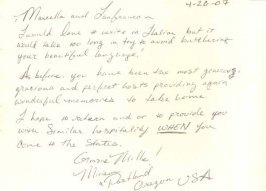 4-26-07
Marcella and Gianfranco
I would love to write in Italian but it
would take too long in try to avoid butchering
your beautiful language!
As before, you have been the most generous,
gracious and perfect hosts providing again
wonderful memories to take home.
I hope to return and or to provide you
with similar hospitality WHEN you
come to the States.
Grazie Mille!
Portland
Oregon USA